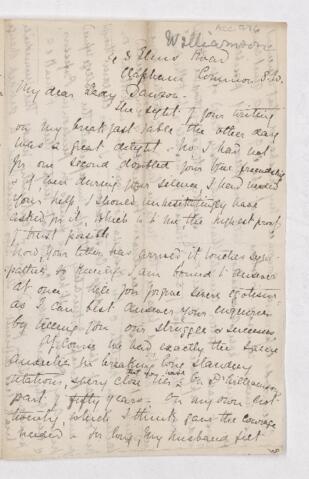 ACC 796
Williamson
3 Elms Road
Clapham Common S.W.
My dear Lady Dawson.
The sight of your writing
on my breakfast table the other day
was a great delight. No I had not
for one second doubted your true friendship
& if even during your silence, I had needed
your help, I should unhesitatingly have
asked for it, which is to me, the highest proof
of trust possible
Now, your letter has arrived, it touches
I am bound to answer
at once. Will you forgive sheer egotism
as I can best answer your enquiries
by telling you our struggles & successes
Of course we had exactly the same
in breaking long standing
associations, very close on Dr Williamson's
part, & fifty years. On my own
which I think gave the courage
needed for long, my husband felt